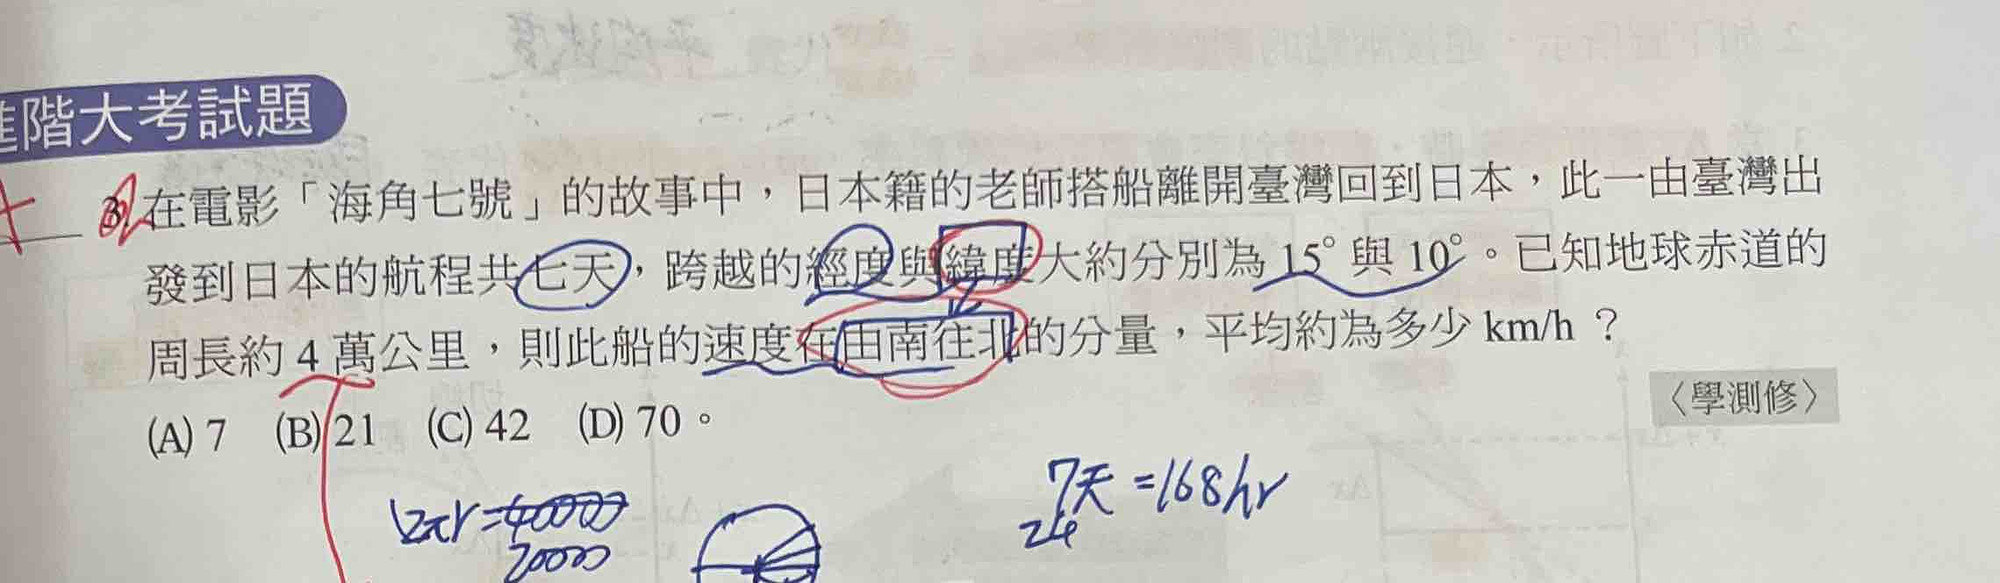 進階大考試題
3.在電影「海角七號」的故事中，日本籍的老師搭船離開臺灣回到日本，此一由臺灣出
發到日本的航程共七天，跨越的經度與緯度大約分別為 15° 與 10°。已知地球赤道的
周長約 4 萬公里，則此船的速度在由南往北的分量，平均約為多少 km/h ？
〈學測修〉
(A) 7 (B) 21 (C) 42 (D) 70 。
7天 =168hr
24
2πr=40000
20000